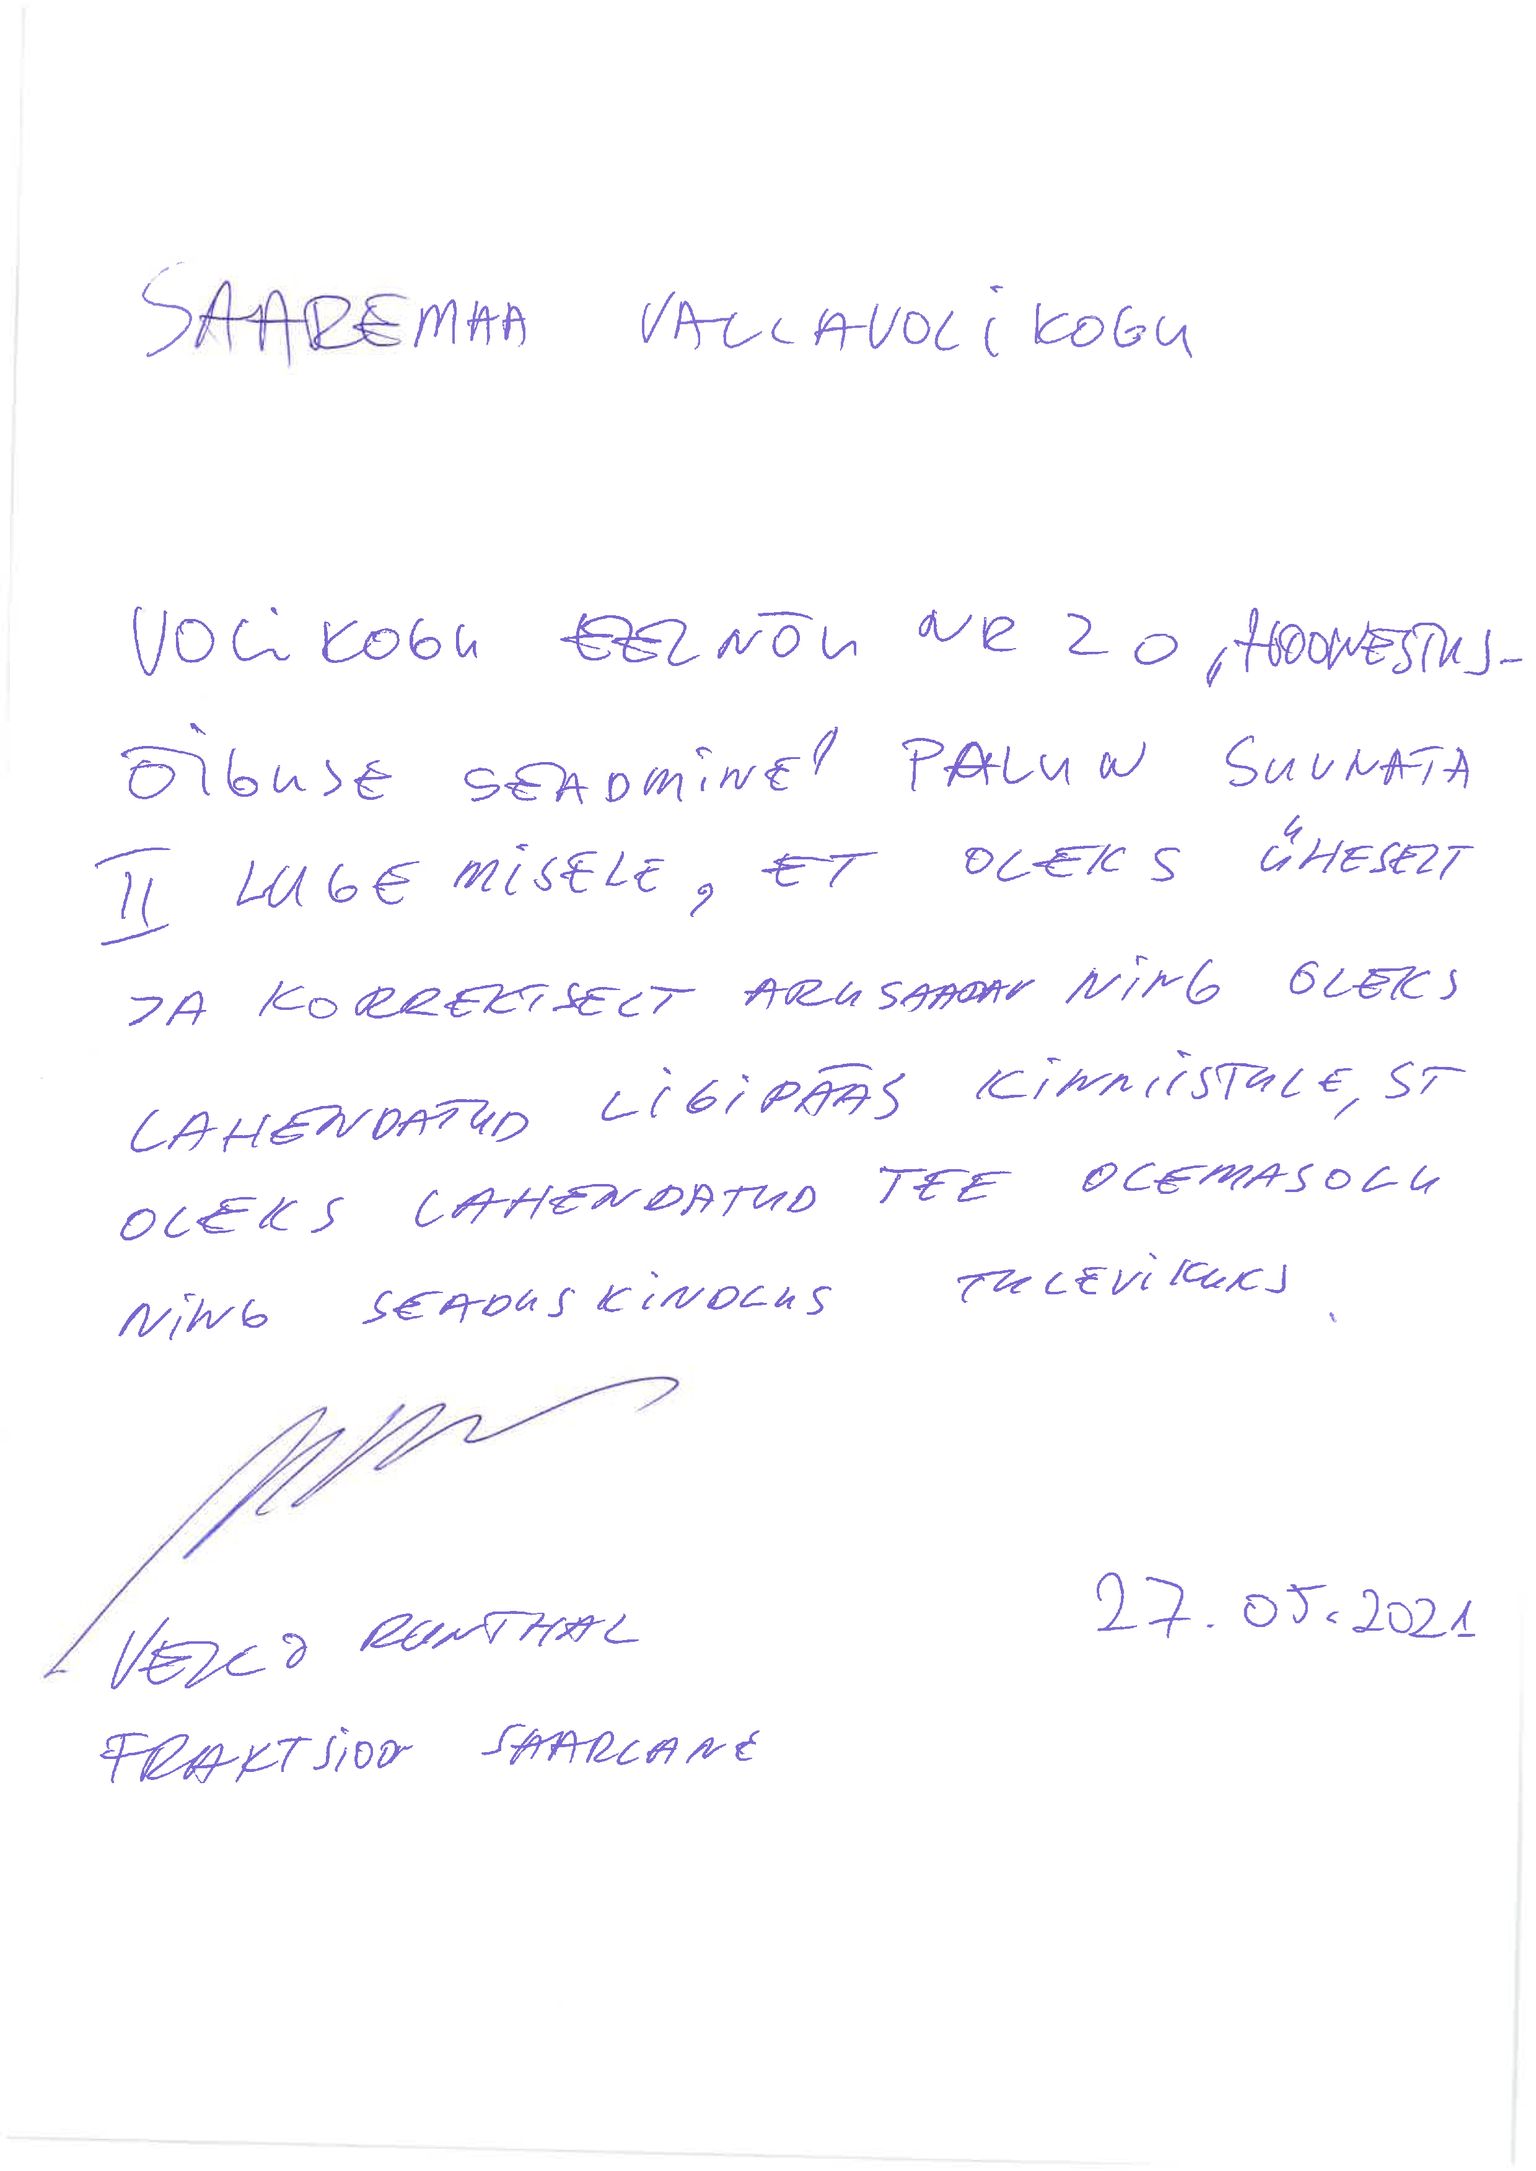 SAAREMAA VALLAVOLIKOGU
VOLIKOGU EELNÕU NR 20 „HOONESTUS-
ÕIGUSE SEADMINE" PALUN SUUNATA
II LUGEMISELE, ET OLEKS ÜHESELT
JA KORREKTSELT ARUSAADAV NING OLEKS
LAHENDATUD LIGIPÄÄS KINNIISTULE, ST
OLEKS LAHENDATUD TEE OLEMASOLU
NING SEADUSKINDLUS TULEVIKUKS.
27.05.2021
VELLO RUNTHAL
FRAKTSIOON SAARLANE